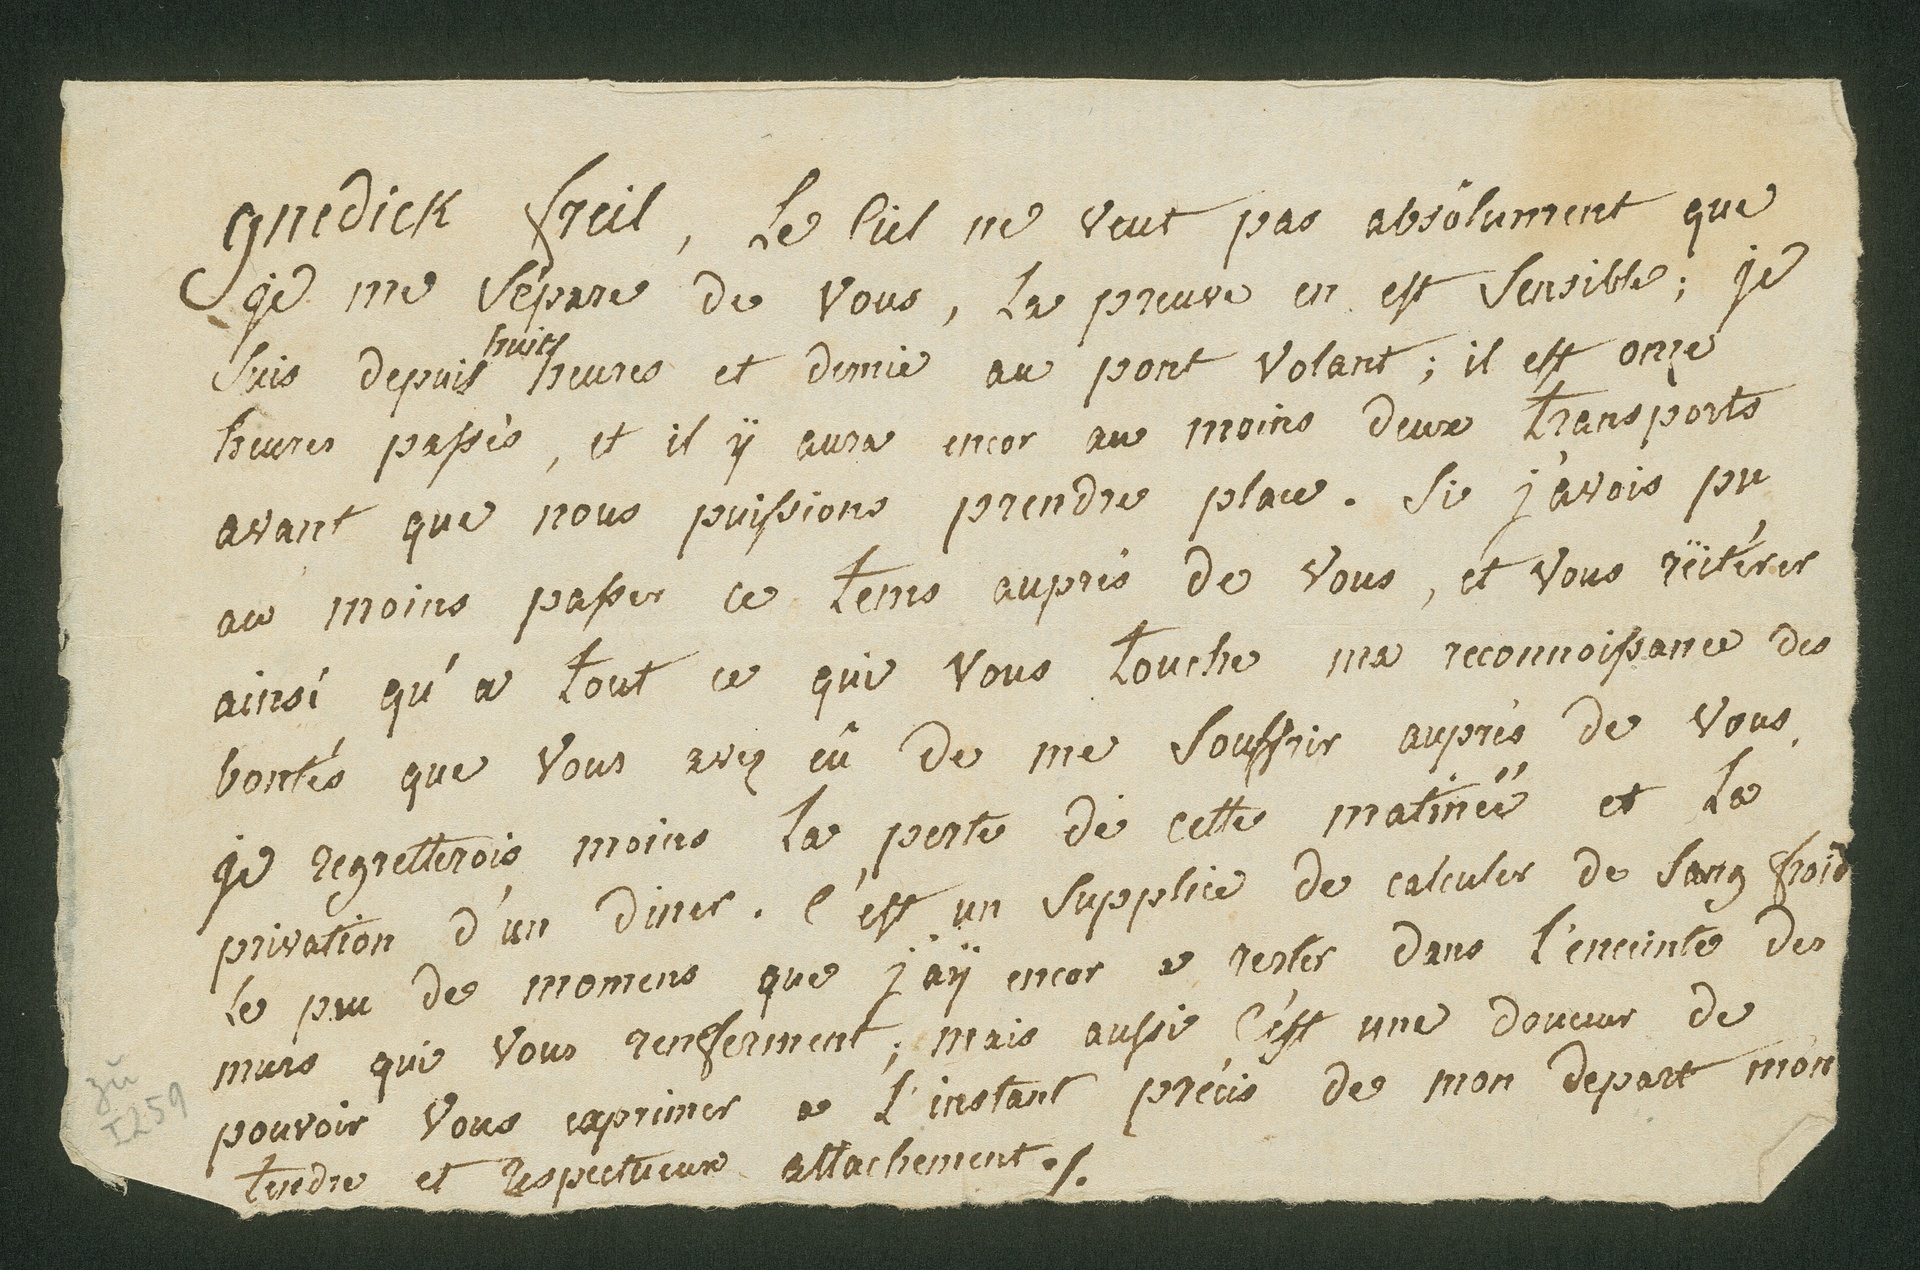 gnedick freil, Le Ciel ne veut pas absolument que
je me sépare de vous, La preuve en est sensible; je
suis depuis huit heures et demie au pont volant; il est onze
heures passés, et il ÿ aura encor au moins deux transports
avant que nous puissions prendre place. Si j'avois pu
au moins passer ce tems auprés de vous, et vous réitérer
ainsi qu'a tout ce qui vous touche ma reconnoissance des
bontés que vous avez eû de me souffrir auprés de vous,
je regretterois moins La perte de cette matinée et La
privation d'un diner. C'est un supplice de calculer de sang froid
Le peu de momens que j'aÿ encor a rester dans L'enceinte des
murs qui vous renferment; mais aussi C'est une douceur de
pouvoir vous exprimer a L'instant précis de mon depart mon
tendre et respectueux attachement./.
zu
I259